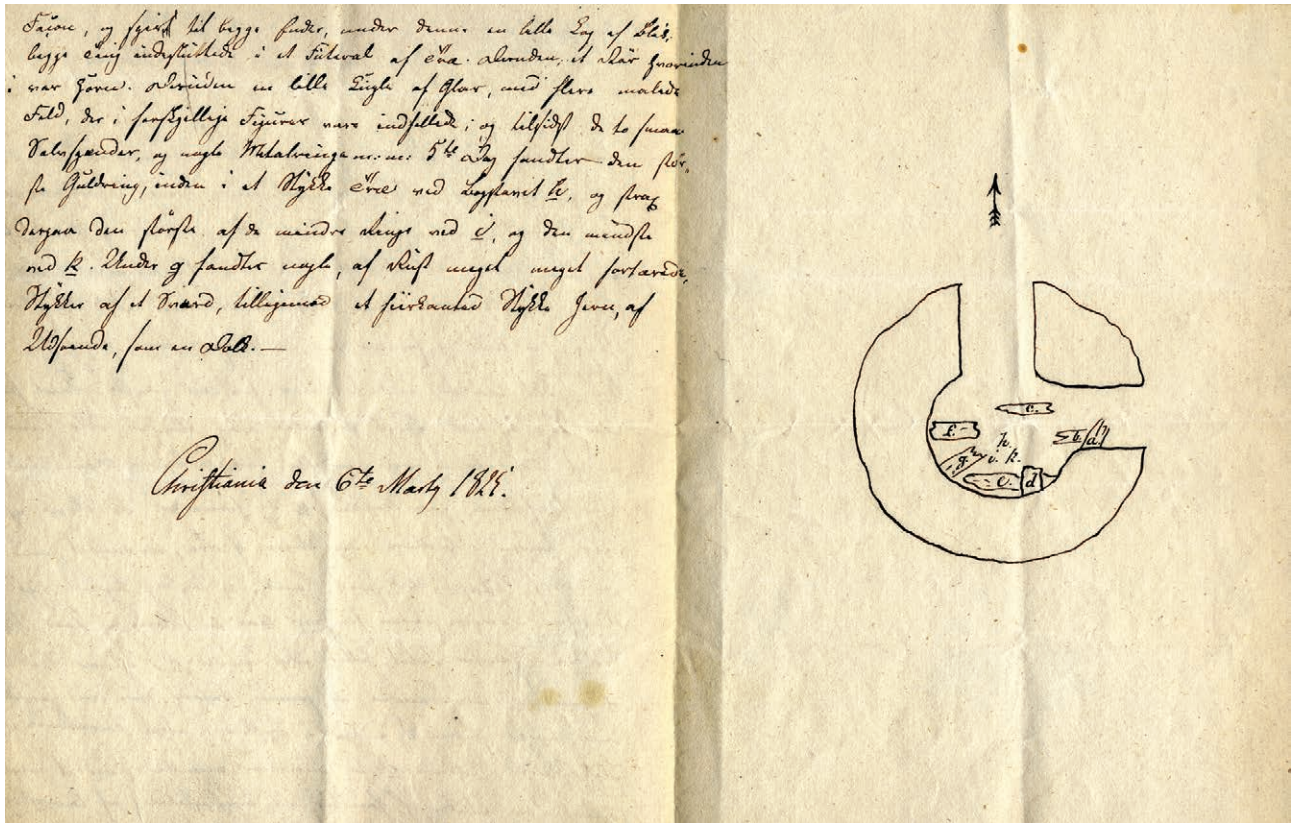 Façon, og spidst til begge Ender, under denne en lille Æg af Blik;
begge Ting indesluttede i et Futeral af Træ. Desuden, et Kar hvorinden
i var Hørn. Desuden en lille Kugle af Glas, med flere malede
Feld, der i forskjellige Figurer vare indfattede; og tilsidst de to smaae
Sølvspænder, og nogle Metalringe m: m: 5te Dag fandtes den stør-
ste Guldring, inden i et Stykke Træ ved Bogstavet h, og strax
derpaa den største af de mindre Ringe ved i, og den mindste
ved k. Under g fandtes nogle, af Rust meget meget fortærede,
Stykker af et Sværd, tilligemed et fiirkantet Stykke Jern, af
Udseende, som en Dolk.—
Christiania den 6te Marty
c.
f.
b. a
h.
g i. k.
e. d